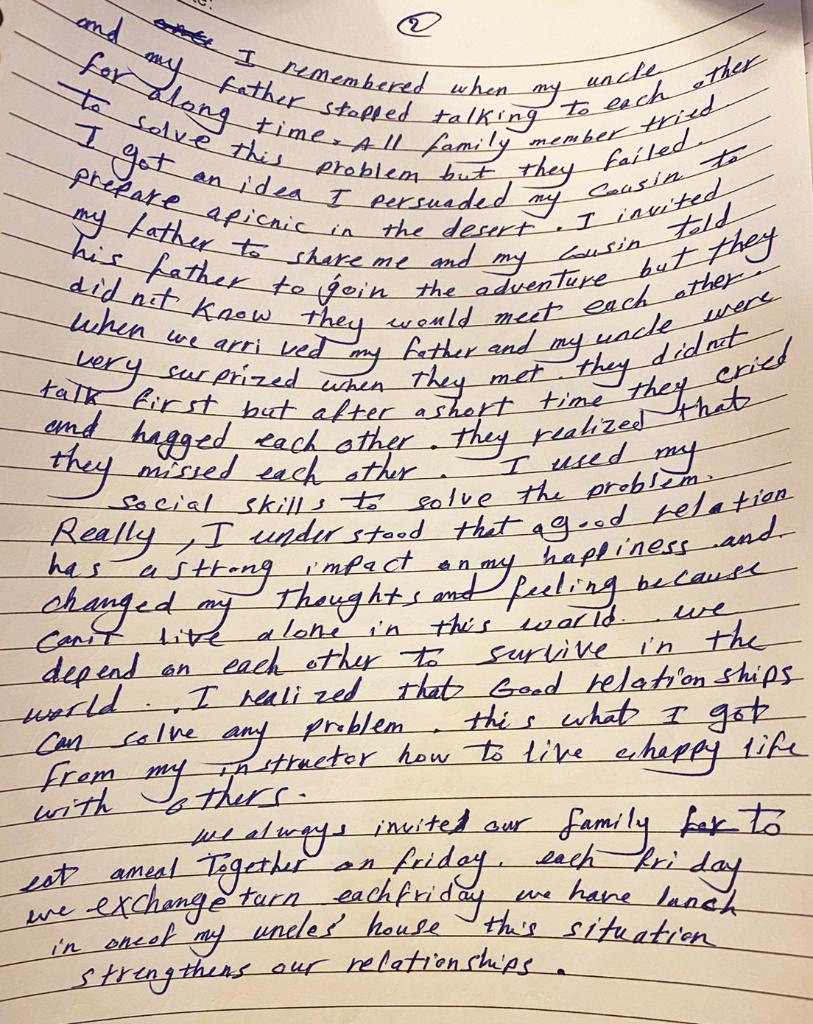 2
I remembered when my uncle
and my father stopped talking to each other
for along time. All family member tried
to solve this problem but they failed.
I got an idea I persuaded my cousin to
prepare apicnic in the desert. I invited
my father to share me and my cousin told
his father to goin the adventure but they
did nit know they would meet each other.
when we arrived my father and my uncle were
very surprized when they met. they didnit
talk first but after ashort time they cried
and hagged each other. they realized that
they missed each other. I used my
social skills to solve the problem.
Really, I understood that agood relation
has astrong impact on my happiness and
changed my thoughts and feeling because
can't live alone in this world. we
depend on each other to survive in the
world. I realized that Good relationships
can solve any problem. this what I got
from my instructor how to live ahappy life
with others.
we always invited our family to
eat ameal Together on friday. each friday
we exchange turn eachfriday we have lunch
in oneof my uncles' house this situation
strengthens our relationships.